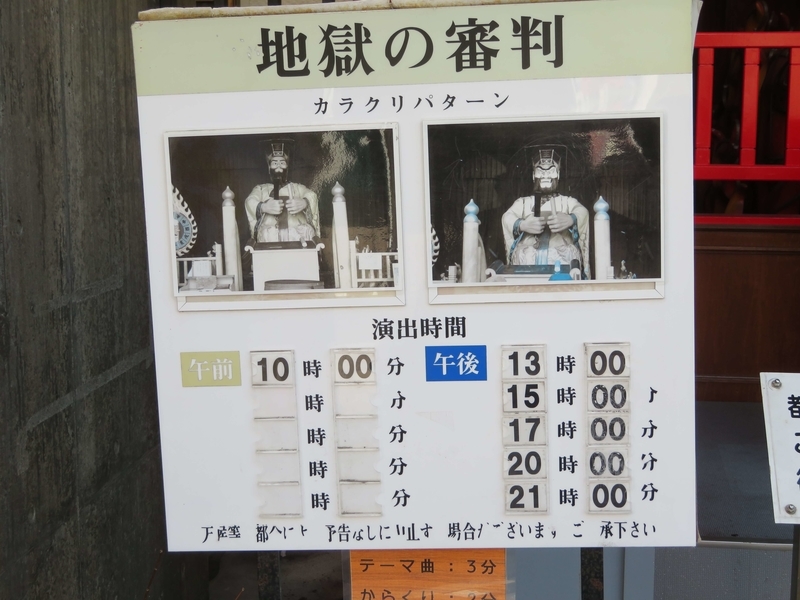 地獄の審判
カラクリパターン
演出時間
午前 10 時 00 分
時 分
時 分
時 分
時 分
午後 13 時 00
15 時 00
17 時 00 分
20 時 00 分
21 時 00 分
予告なしに 止す 場合がございます ご 承下さい
テーマ曲：3分
からくり：
都